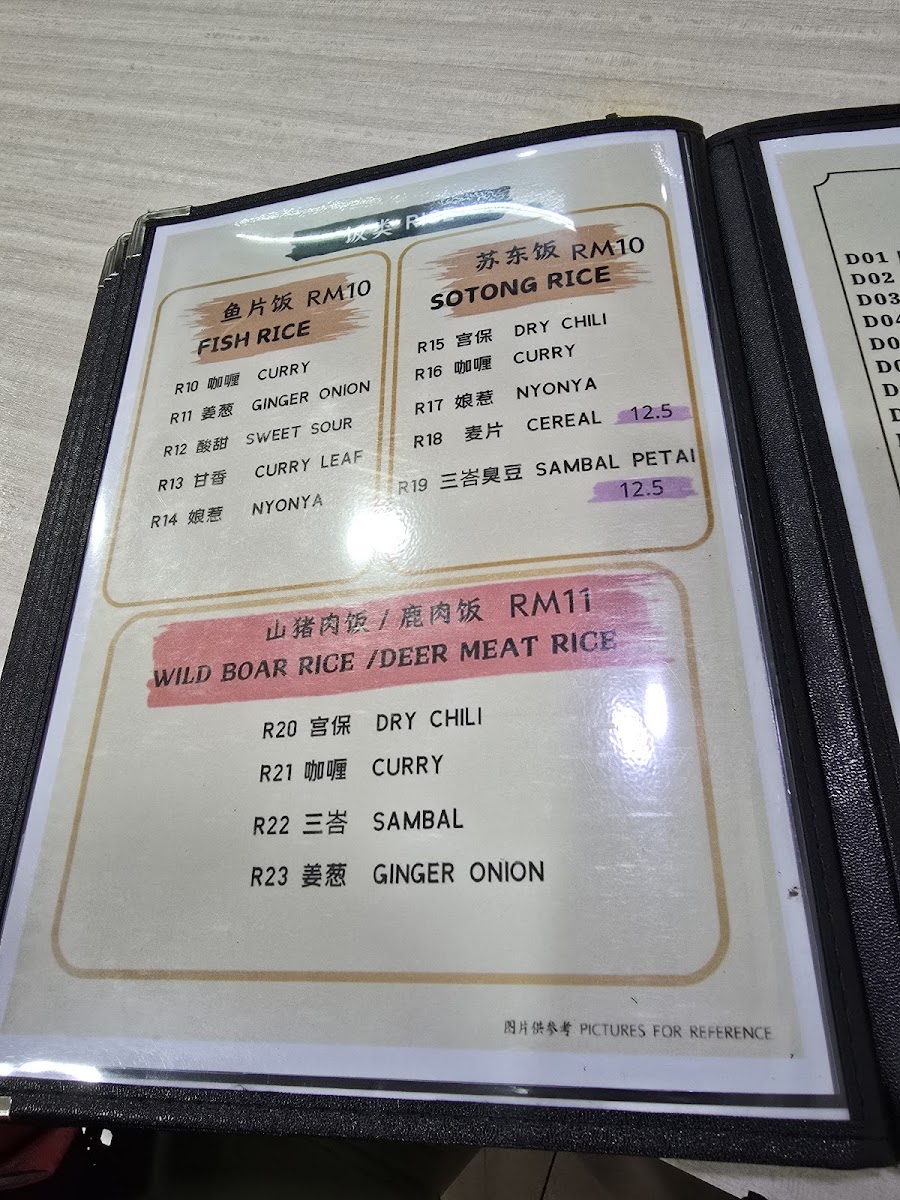 饭类 RICE
鱼片饭 RM10
FISH RICE
R10 咖喱 CURRY
R11 姜葱 GINGER ONION
R12 酸甜 SWEET SOUR
R13 甘香 CURRY LEAF
R14 娘惹 NYONYA
苏东饭 RM10
SOTONG RICE
R15 宫保 DRY CHILI
R16 咖喱 CURRY
R17 娘惹 NYONYA
R18 麦片 CEREAL 12.5
R19 三峇臭豆 SAMBAL PETAI
12.5
山猪肉饭 / 鹿肉饭 RM11
WILD BOAR RICE /DEER MEAT RICE
R20 宫保 DRY CHILI
R21 咖喱 CURRY
R22 三峇 SAMBAL
R23 姜葱 GINGER ONION
图片供参考 PICTURES FOR REFERENCE
D01
D02
D03